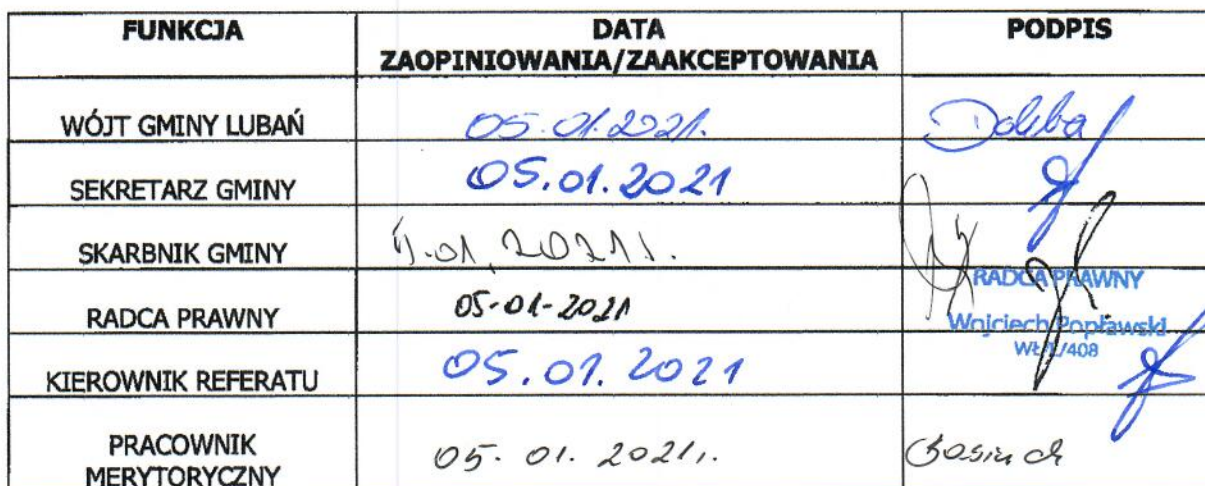 FUNKCJA DATA PODPIS
ZAOPINIOWANIA/ZAAKCEPTOWANIA
WÓJT GMINY LUBAŃ 05.01.2021.
SEKRETARZ GMINY 05.01.2021
SKARBNIK GMINY .01.2021r.
RADCA PRAWNY 05-01-2021
RADCA PRAWNY
Wojciech Popławski
KIEROWNIK REFERATU 05.01.2021
PRACOWNIK
MERYTORYCZNY 05.01.2021r.